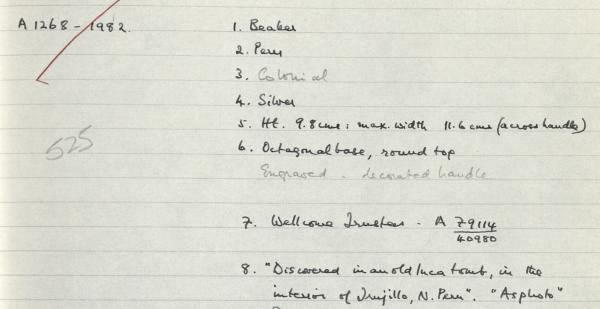 A 1268 - 1982.
1. Beaker
2. Peru
3. Colonial
4. Silver
5. Ht. 9.8 cms; max. width 11.6 cms (across handle)
525
6. Octagonal base, round top
Engraved - decorated handle
7. Wellcome Trustees - A 79114
40980
8. "Discovered in an old Inca tomb, in the
interior of Trujillo, N. Peru". "As photo"